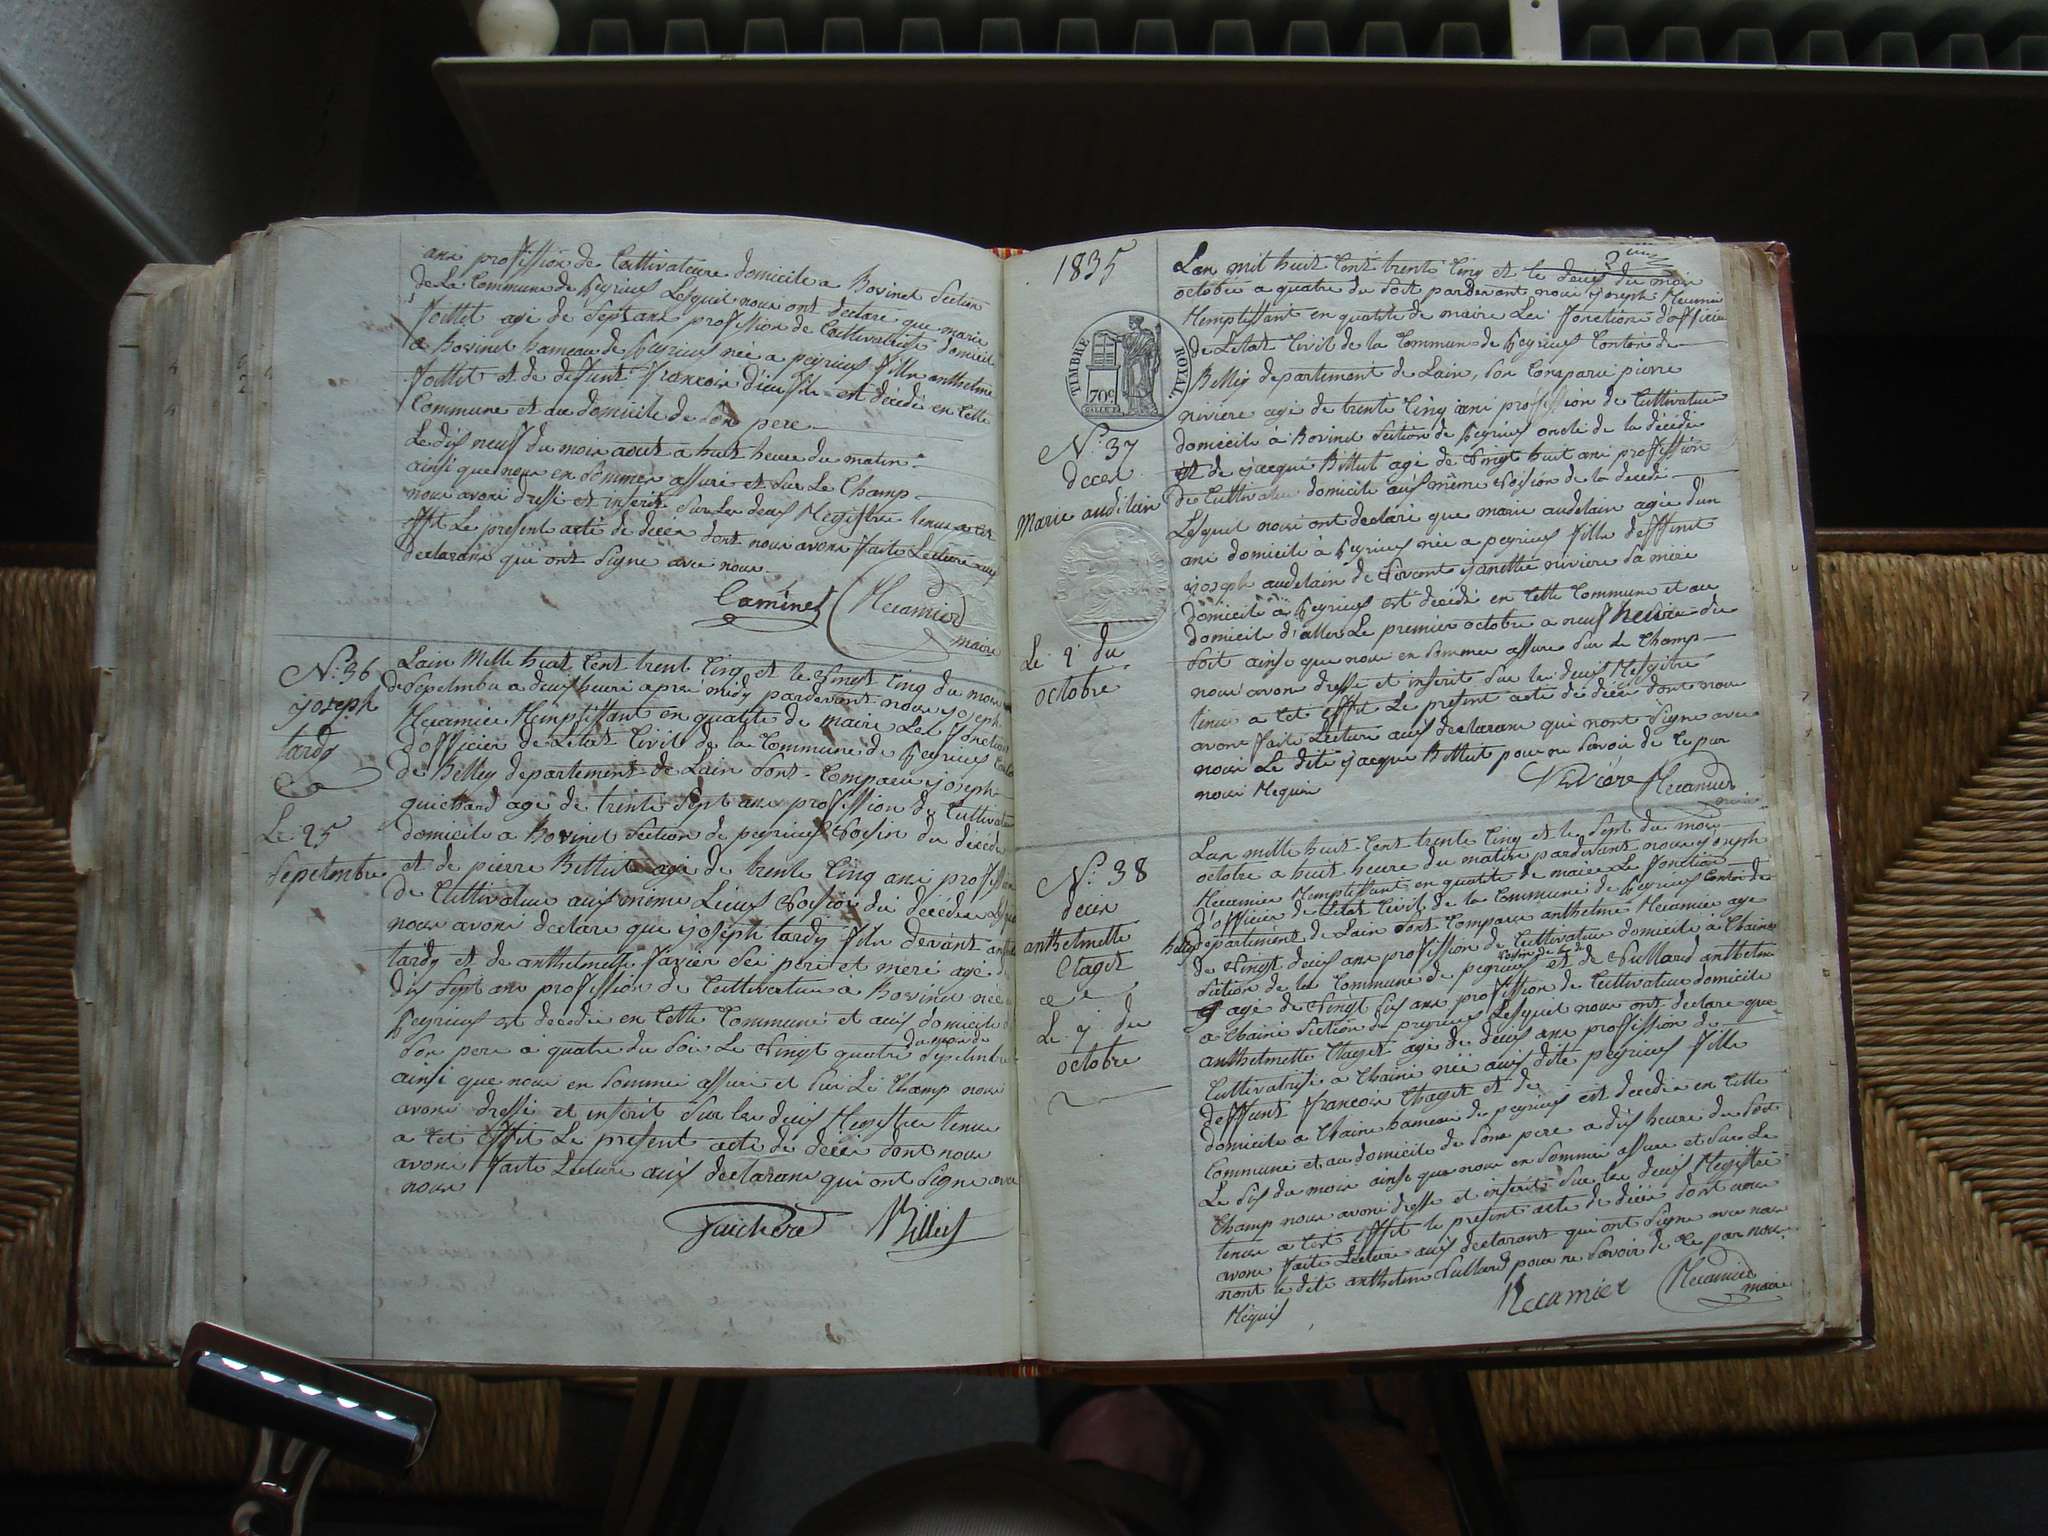 ans profission de Cultivateure domicile a Bovinel Section
de La Commune de Peyrieus Lesquel nous ont declaré que marie
Jollet agé de Sept ans profission de Cultivateuse domicile
a Bovinel hameau de Peyrieus née a peyrieus fille anthelme
Jollet et de deffunt francoise est décédé en Cette
Commune et au domicile de Son pere
Le dix neuf du mois aout a huit heure du matin
ainsi que nous en Sommes assuré et Sur Le Champ
nous avons dressé et inscrit Sur Les deus Registre tenue a cet
effet Le present acte de décès dont nous avons faite Lecture aus
declarans qui ont Signé avec nous
Caminet Recamier
maire
N°. 36
joseph
tardy
Le 25
Sepetmbre
Lain Mille huit Cent trent Cinq et le Vingt Cinq du mois
de Sepetmbre a deus heure apres midy pardevant nous joseph
Recamier Remplissant en qualité de maire Les fonctions
d'officier de Letat Civil de la Commune de Peyrieus
de Belley departement de Lain Sont Comparu joseph
guichard agé de trente Sept ans profission de Cultivateur
domicile a Bovinel Section de peyrieus Voisin du décédé
et de pierre Billiet agé de trente Cinq ans profission
de Cultivateur aus même Lieus Voision du décédé
nous avons declare que joseph tardy fils
tardy et de anthelmette Javier Ses pere et mere agé de
dix Sept ans profission de Cultivateur a Bovinel née
Peyrieus est décédé en Cette Commune et aus domicile de
Son pere a quatre du Soir Le Vingt quatre du mois de Sepetmbre
ainsi que nous en Sommes assuré et Sur Le Champ nous
avons dressé et inscrit Sur les deus Registre tenue
a Cet effet Le present acte de décès dont nous
avons faite Lecture aus declarans qui ont Signé avec
nous
Guicherd Billiet
1835
TIMBRE ROYAL
70c
N°. 37
deces
Marie audelain
Le 2 du
octobre
Lan mil huit Cent trente Cinq et le deus du mois
octobre a quatre du Soir pardevant nous joseph Recamier
Remplissant en qualité de maire Les fonctions dofficier
de Letat Civil de la Commune de Peyrieus Conton de
Belley departement de Lain, Son Comparu pierre
riviere agé de trente Cinq ans profission de Cultivateur
domicile à Bovinel Section de Peyrieus oncle de la décédé
et de jacque Billiet agé de Vingt huit ans profission
de Cultivateur domicile aus même Voision de la décédé
Lesquel nous ont declaré que marie audelain agée d'un
ans domicile à Peyrieus née a peyrieus fille deffunt
joseph audelain de Vivent janette riviere Sa mere
domicile à Peyrieus est décédé en Cette Commune et au
domicile d'aller Le premier octobre a neuf heure du
Soir ainsi que nous en Sommes assure Sur Le Champ
nous avons dressé et inscrit Sur les deus Registre
tenue a Cet effet Le present acte de décès dont nous
avons faite Lecture aus declarans qui nont Signé avec
nous Le dite jacque Billiet pour ne Savoir de Ce par
nous Requis
Rivière Recamier
N°. 38
deces
anthelmette
Chaget
Le 7 du
octobre
Lan mille huit Cent trente Cinq et le Sept du mois
octobre a huit heure du matin pardevant nous joseph
Recamier Remplissant en qualité de maire Les fonction
d'officier de Letat Civil de la Commune de Peyrieus Conton de
belley departement de Lain Sont Comparu anthelme Recamier agé
de Vingt deus ans profission de Cultivateur domicile à Chaine
Section de la Commune de peyrieus et de Vullard anthelme
agé de Vingt Sis ans profission de Cultivateur domicile
a Chaine Section de peyrieus Lesquel nous ont declare que
anthelmette Chaget agé de deus ans profission de
Cultivatrise a Chaine née aus dite peyrieus fille
deffunt francois Chaget et de
domicile a Chaine hameau de peyrieus est décédé en Cette
Commune et au domicile de Sone pere a dis heure du Soir
Le Sis du mois ainsi que nous en Sommes assure et Sur Le
Champ nous avons dressé et inscrit Sur les deus Registre
tenue a Cet effet le present acte de décès dont nous
avons faite Lecture aus declarant qui ont Signe avec nous
nont le dite anthelme Vullard pour ne Savoir de Ce par nous
Requis
Recamier Recamier
maire